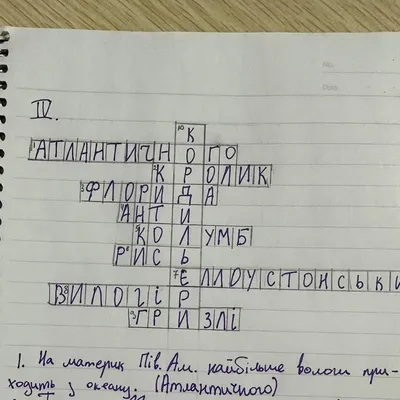 No.
Date
IV.
10 К
1 АТЛАНТИЧНОГО
КРОЛИК
3 ФЛОРИДА
АНТИ
КОЛУМБ
РИСЬ
7 ЕЛЛОУСТОНСЬКИ
ВИЛОГІР
ГРИЗЛІ
1. На материк Півн. Ам. найбільше вологи при-
ходить з океану. (Атлантичного)